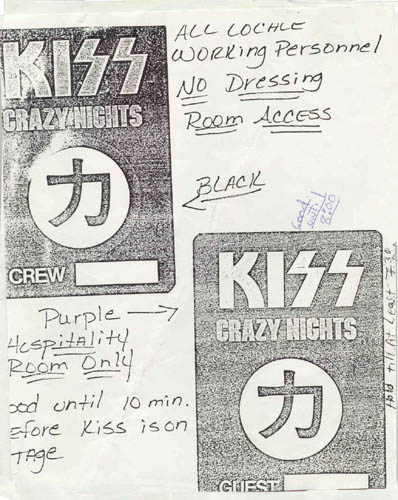 KISS
CRAZY NIGHTS
力
CREW
ALL LOCALE
Working Personnel
NO Dressing
Room Access
BLACK
Good
until
8:00
Purple
Hospitality
Room Only
ood until 10 min.
efore Kiss is on
tage
KISS
CRAZY NIGHTS
力
GUEST
Hold till At Least 7:30